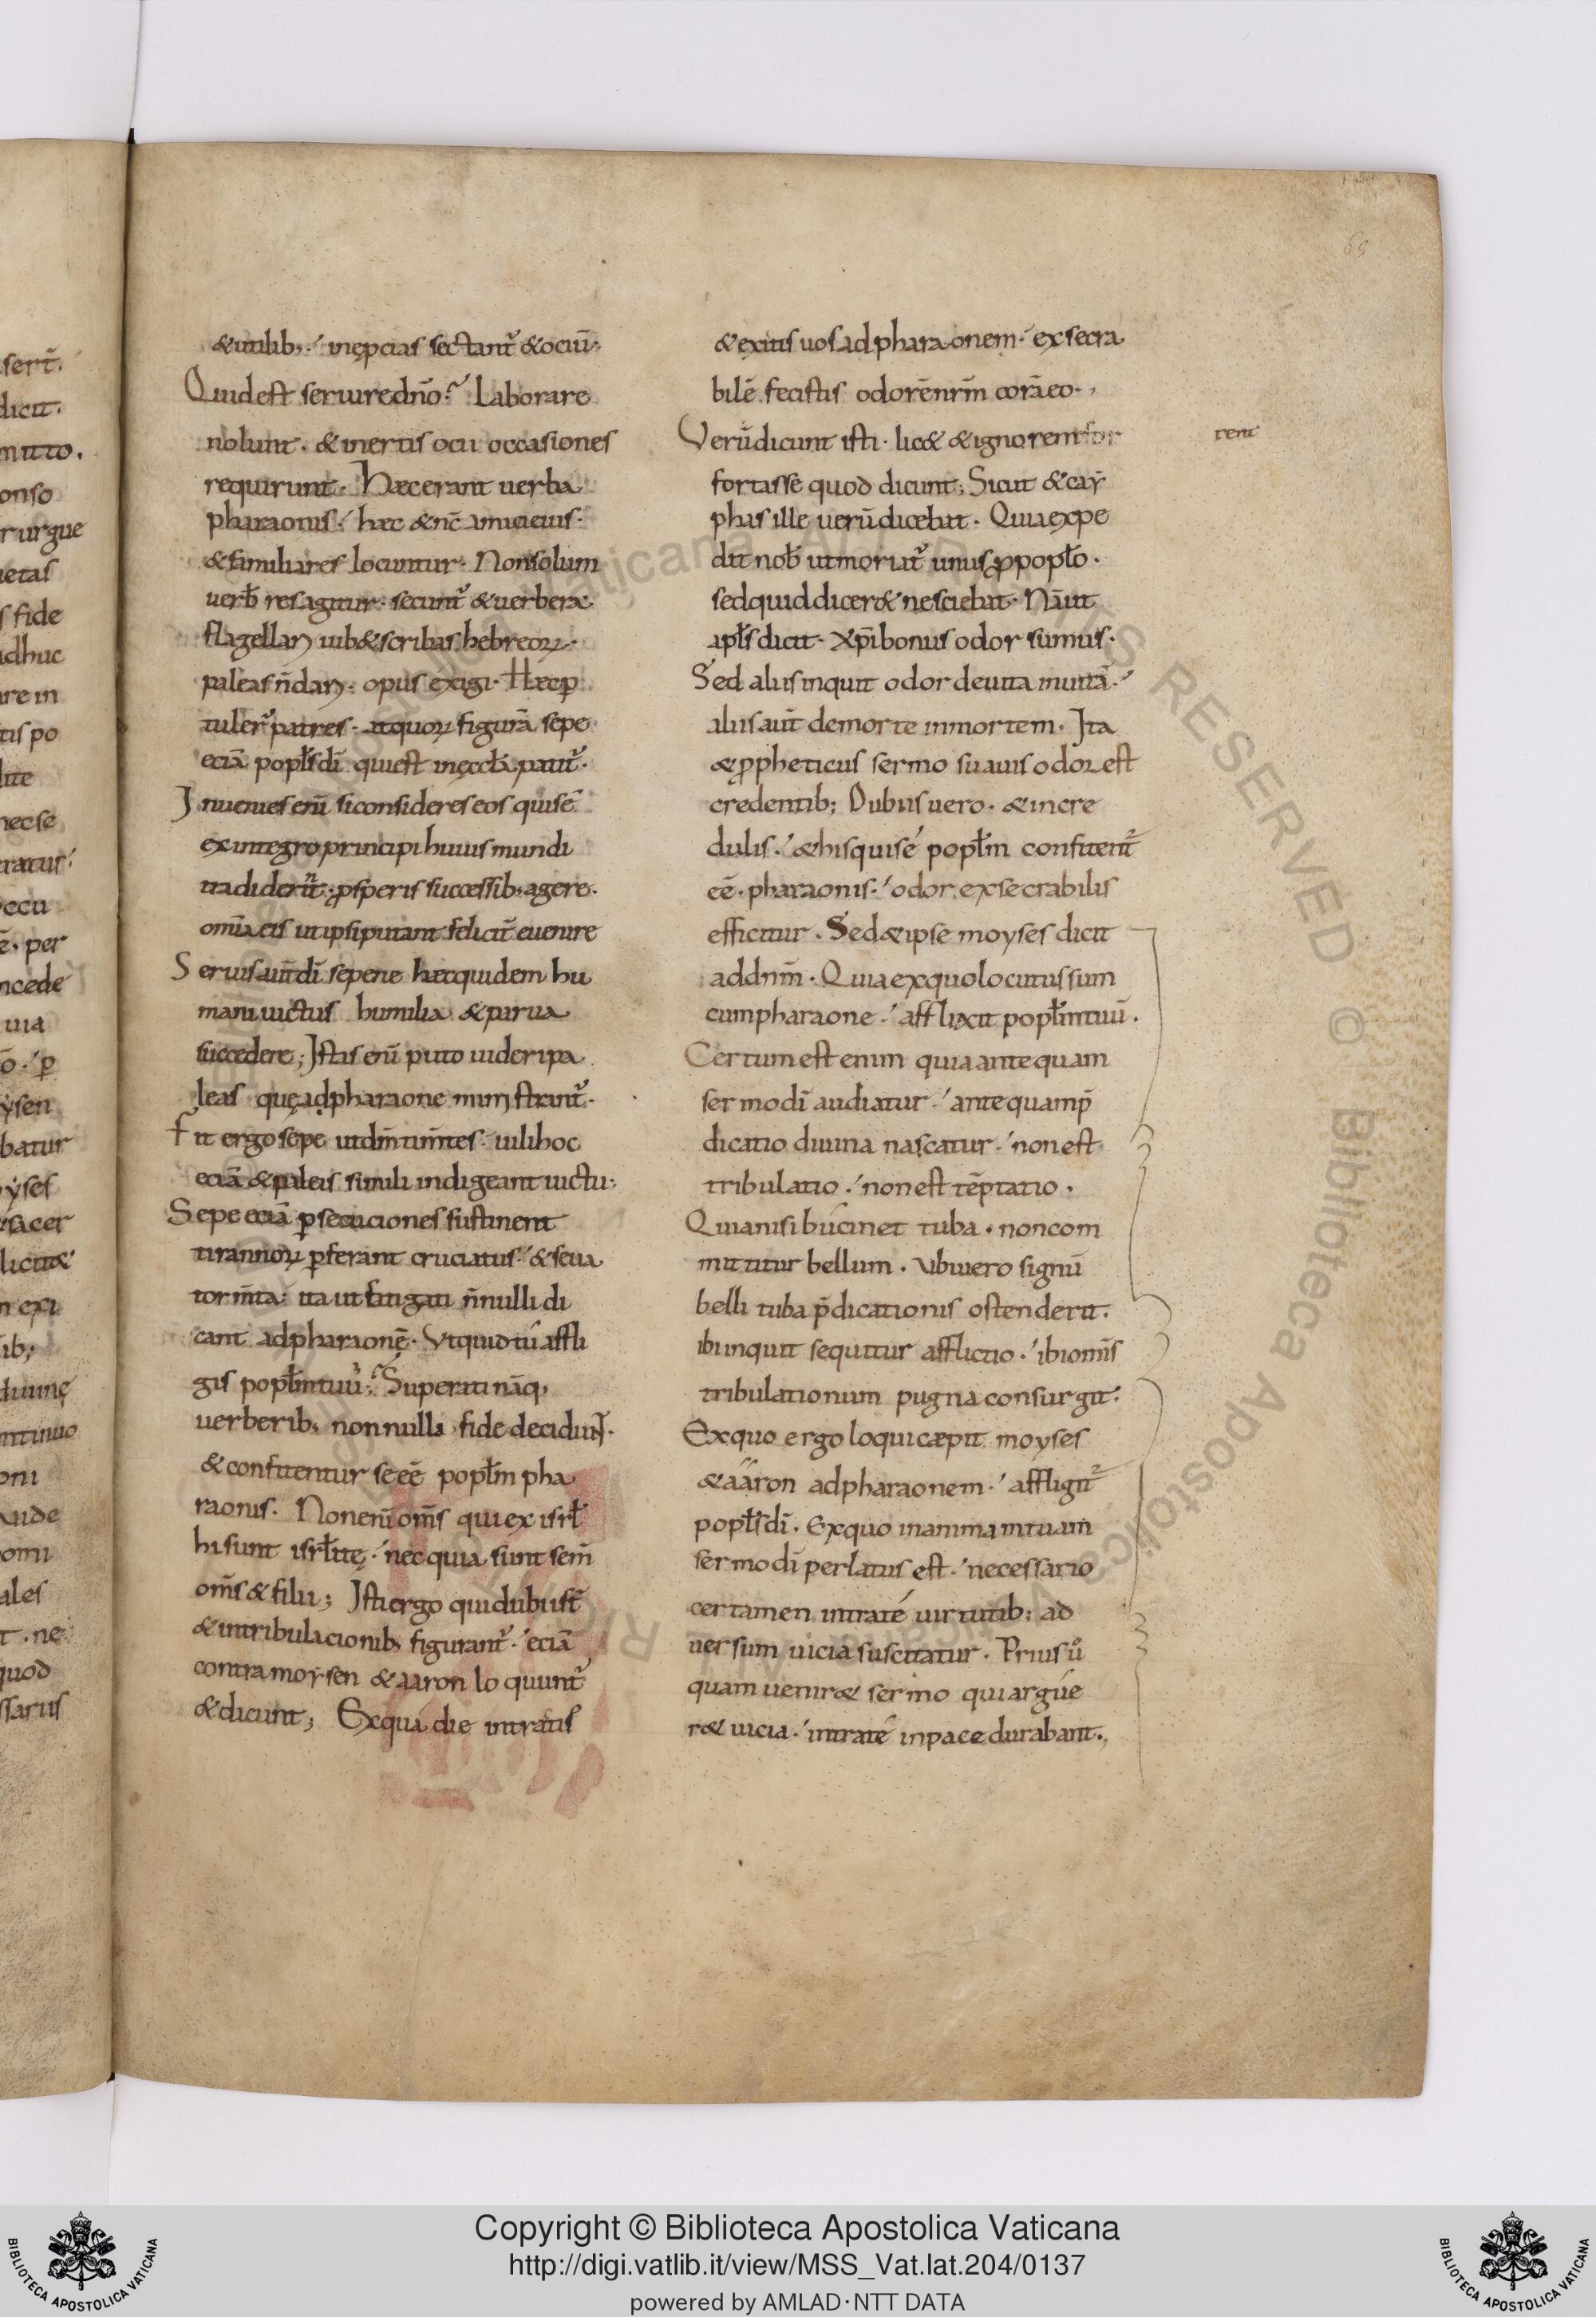 &utilib; inepcias sectant̃ &ociũ;
Quid est seruire dn̄o? Laborare
nolunt. & inertis ocii occasiones
requirunt. Hæc erant uerba
pharaonis. hæc & nc̄ amici eius.
& familiares locuntur. Non solum
uerb̄ res agitur. secunt̃ & uerbera
flagellari iub& scribas hebreoꝝ.
paleas n̄ dari. opus exigi. Hæc ꝑ
tuler̃ patres. ut quoꝝ figurā sepe
eciā popl̄s dī qui est in ęccl̄a patit̃.
Inuenies enī si consideres eos qui sē
ex integro principi huius mundi
tradider̃t. ꝓsperis successib; agere.
om̄ia eis ut ipsi putant felicit̃ euenire
Seruis aut̄ dī sepe ne hæc quidem hu
mani uictus humilia & parua
succedere; Istas enī puto uideri pa
leas quę ad pharaone ministrant̃.
Fit ergo sepe ut dm̄ tim̄tes. uili hoc
eciā & paleis simili indigeant uictu;
Sepe eciā ꝑsecuciones sustinent
tirannoꝝ ꝑferant cruciatus. & seua
torm̄ta. ita ut fatigati n̄nulli di
cant ad pharaonē. Vt quid tu affli
gis popl̄m tuū? Superati nāq;
uerberib; non nulli fide decidunt.
& confitentur se eē popl̄m pha
raonis. Non enī om̄s qui ex isrl̄
hi sunt isrl̄itę. nec quia sunt sem̄
om̄s & filii; Isti ergo qui dubii st̄
& in tribulacionib; figurant̃. eciā
contra moysen & aaron loquunt̃
& dicunt; Ex qua die intratis
& exitis uos ad pharaonem. exsecra
bilē fecistis odorē nrm̄ corā eo.
Verū dicunt isti. lic& & ignorent for
rent
fortasse quod dicunt; Sicut & cay
phas ille uerū dicebat. Quia expe
dit nob̄ ut moriat̃ unus ꝓ popl̄o.
sed quid dicer& nesciebat. Nā ut
apl̄s dicit. xp̄i bonus odor sumus.
Sed aliis inquit odor de uita in uitā.
aliis aut̄ de morte in mortem. Ita
& ꝓpheticus sermo suauis odor est
credentib; Dubiis uero. & incre
dulis. & his qui se popl̄m confitent̃
eē. pharaonis. odor exsecrabilis
efficitur. Sed & ipse moyses dicit
ad dnm̄. Quia ex quo locutus sum
cum pharaone. afflixit popl̄m tuū.
Certum est enim quia ante quam
sermo dī audiatur. ante quam p̄
dicatio diuina nascatur. non est
tribulatio. non est tēptatio.
Quia nisi bucinet tuba. non com
mittitur bellum. Vbi uero signū
belli tuba p̄dicationis ostenderit.
ibi inquit sequitur afflictio. ibi om̄is
tribulationum pugna consurgit.
Ex quo ergo loqui cæpit moyses
& aaron ad pharaonem. affligit̃
popl̄s dī. Ex quo in animam tuam
sermo dī perlatus est. necessario
certamen intra te uirtutib; ad
uersum uicia suscitatur. Prius u̇
quam uenir& sermo qui argue
r& uicia. intra te in pace durabant.
Copyright © Biblioteca Apostolica Vaticana
http://digi.vatlib.it/view/MSS_Vat.lat.204/0137
powered by AMLAD·NTT DATA